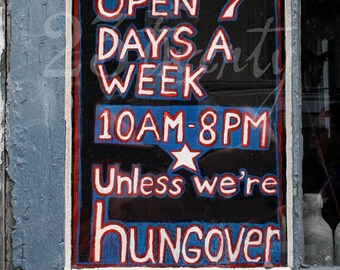 OPEN 7
DAYS A
WEEK
10AM-8PM
Unless we're
hungover